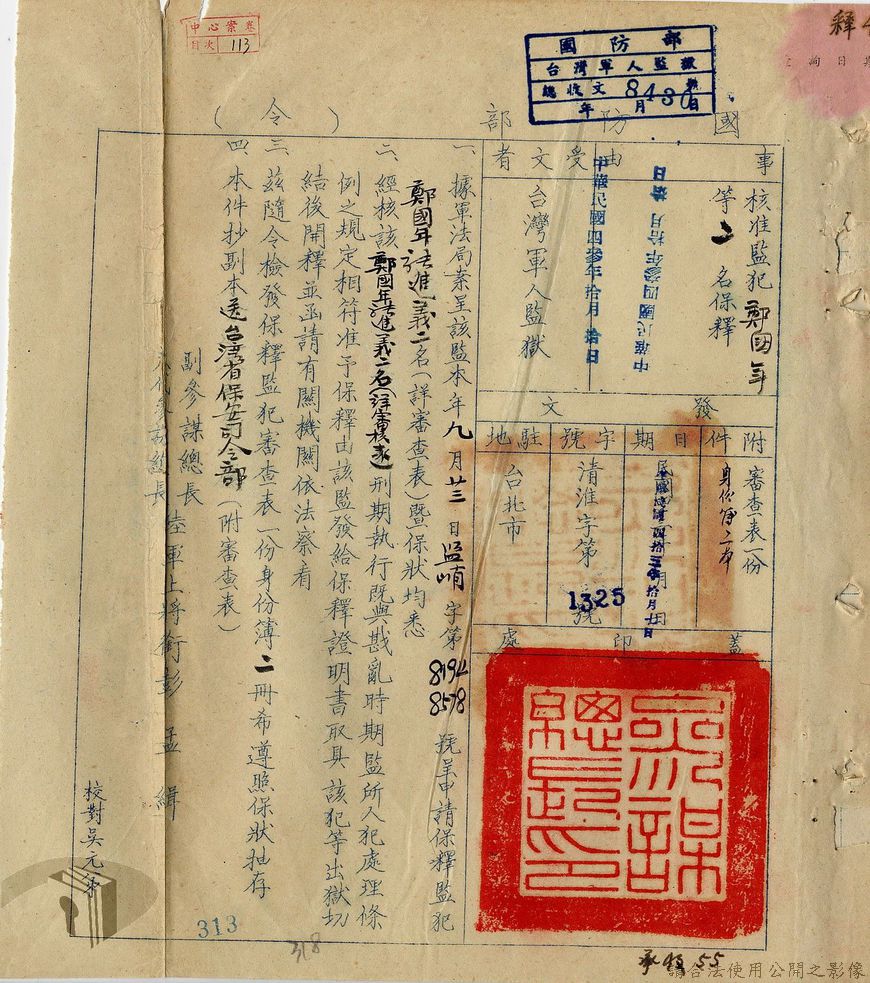 中心案卷
目次 113
國防部
台灣軍人監獄
總收文 8430 號
年 月 日
釋
國防部（令）
事由
核准監犯鄭國年
等二名保釋
受文者
台灣軍人監獄
中華民國四參年拾月拾日
中華民國四參年拾月拾日
發文
附件
審查表一份
身份簿二本
日期
字號
清淮字第1325號
駐地
台北市
蓋印處
參謀總長印
一、據軍法局案呈該監本年九月廿三日監 字第8194 8578號呈申請保釋監犯
鄭國年 進義二名（詳審查表）暨保狀均悉
二、經核該鄭國年 進義二名（詳審核表）刑期執行既與戡亂時期監所人犯處理條
例之規定相符准予保釋由該監發給保釋證明書取具該犯等出獄切
結後開釋並函請有關機關依法察看
三、茲隨令檢發保釋監犯審查表一份身份簿二冊希遵照保狀抽存
四、本件抄副本送台灣省保安司令部（附審查表）
副參謀總長
陸軍上將銜彭孟緝
校對吳元
313
318
55
請合法使用公開之影像